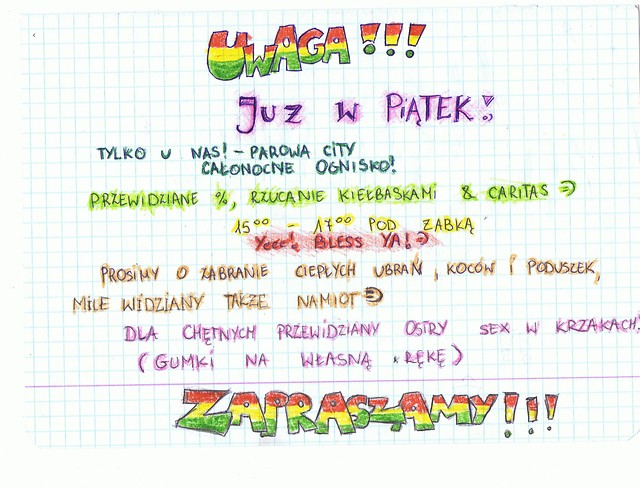 UWAGA!!!
JUZ W PIĄTEK!
TYLKO U NAS! - PAROWA CITY
CAŁONOCNE OGNISKO!
PRZEWIDZIANE %, RZUCANIE KIEŁBASKAMI & CARITAS =)
15⁰⁰ - 17⁰⁰ POD ŻABKĄ
Yeee! BLESS YA! =)
PROSIMY O ZABRANIE CIEPŁYCH UBRAŃ, KOCÓW I PODUSZEK,
MILE WIDZIANY TAKŻE NAMIOT =)
DLA CHĘTNYCH PRZEWIDZIANY OSTRY SEX W KRZAKACH!
(GUMKI NA WŁASNĄ RĘKĘ)
ZAPRASZAMY!!!